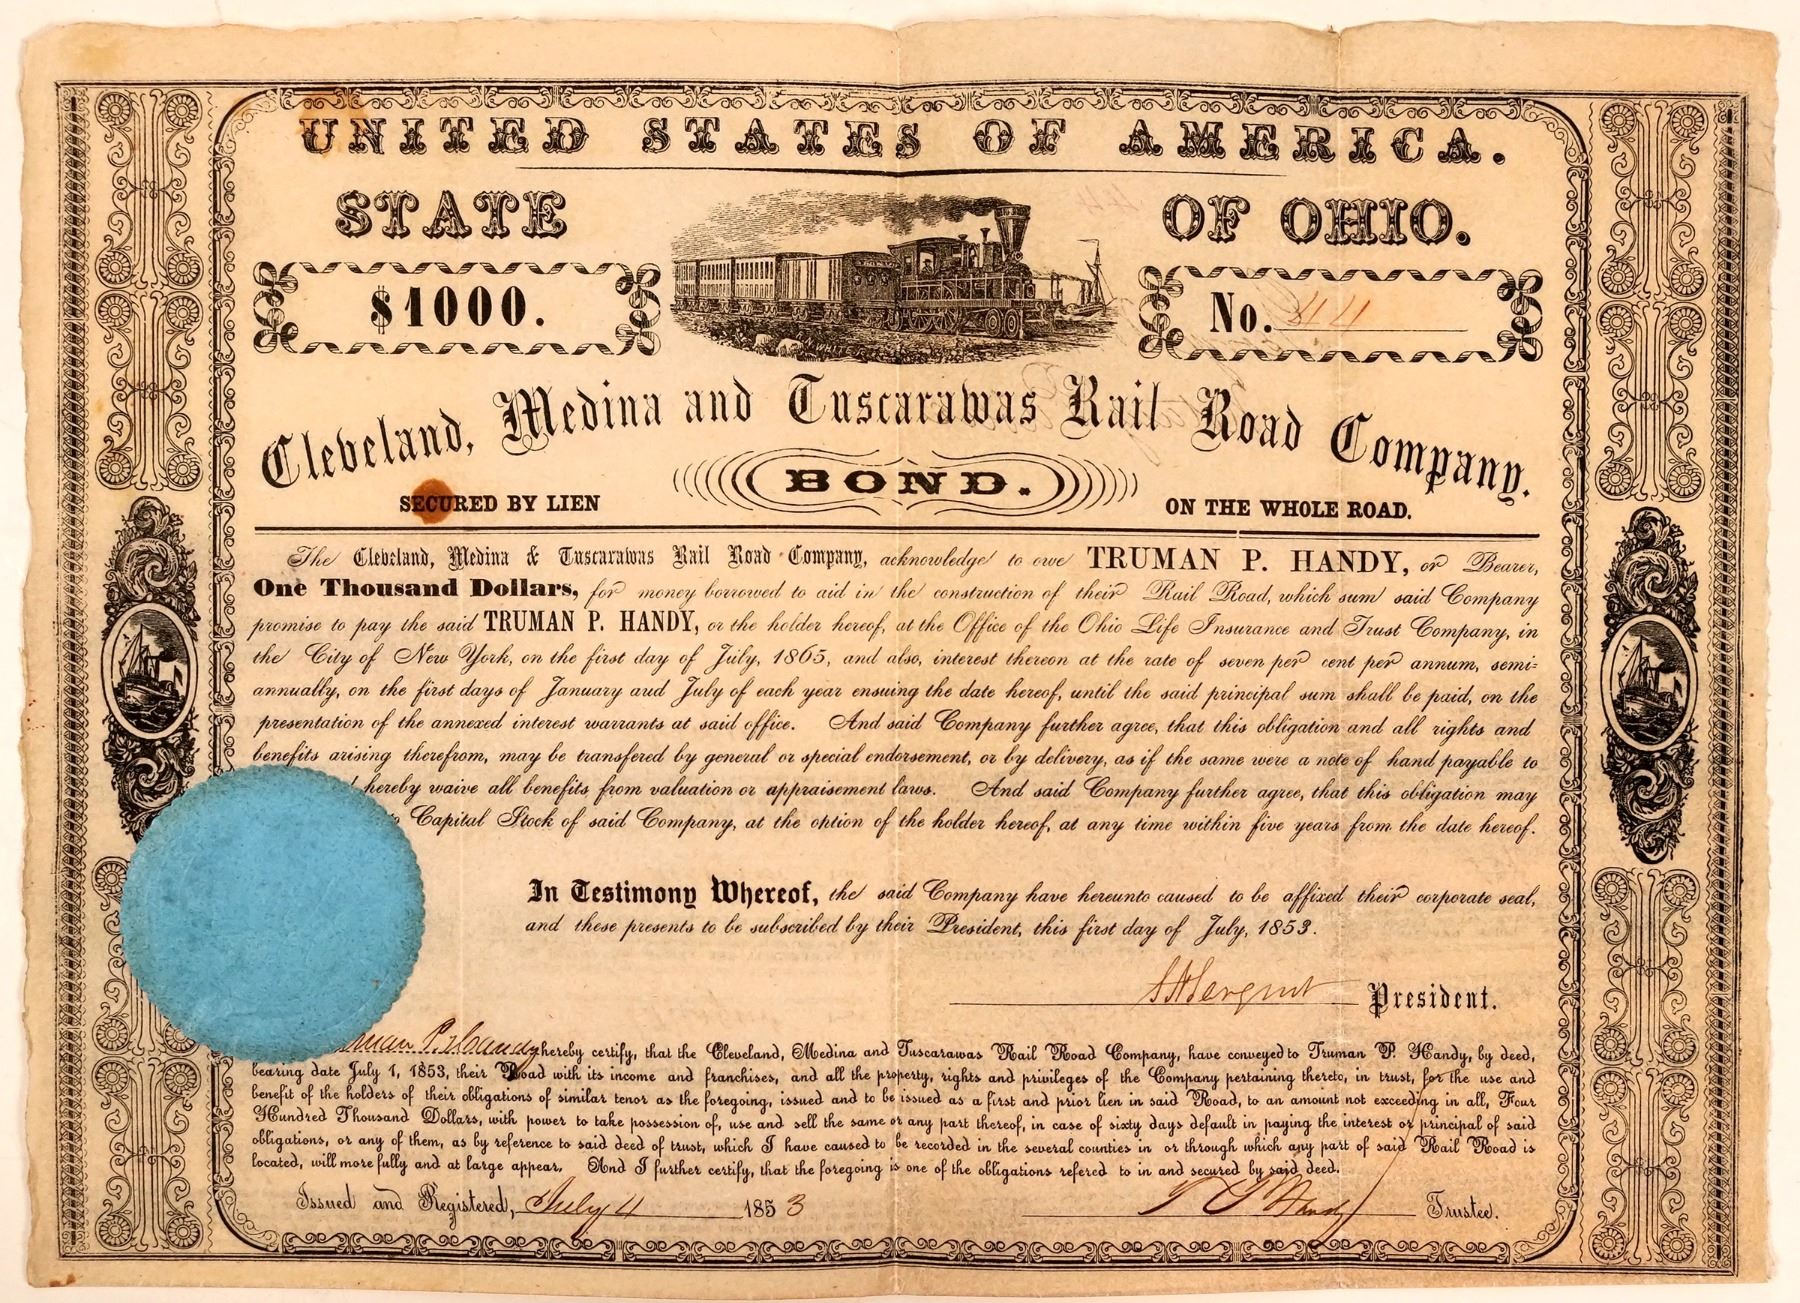 UNITED STATES OF AMERICA.
STATE OF OHIO.
$1000.
No. 44
Cleveland, Medina and Tuscarawas Rail Road Company.
BOND.
SECURED BY LIEN ON THE WHOLE ROAD.
The Cleveland, Medina & Tuscarawas Rail Road Company, acknowledge to owe TRUMAN P. HANDY, or Bearer,
One Thousand Dollars, for money borrowed to aid in the construction of their Rail Road, which sum said Company
promise to pay the said TRUMAN P. HANDY, or the holder hereof, at the Office of the Ohio Life Insurance and Trust Company, in
the City of New York, on the first day of July, 1865, and also, interest thereon at the rate of seven per cent per annum, semi-
annually, on the first days of January aud July of each year ensuing the date hereof, until the said principal sum shall be paid, on the
presentation of the annexed interest warrants at said office. And said Company further agree, that this obligation and all rights and
benefits arising therefrom, may be transfered by general or special endorsement, or by delivery, as if the same were a note of hand payable to
hereby waive all benefits from valuation or appraisement laws. And said Company further agree, that this obligation may
Capital Stock of said Company, at the option of the holder hereof, at any time within five years from the date hereof.
In Testimony Whereof, the said Company have hereunto caused to be affixed their corporate seal,
and these presents to be subscribed by their President, this first day of July, 1853.
S H Sargent President.
P. Handy hereby certify, that the Cleveland, Medina and Tuscarawas Rail Road Company, have conveyed to Truman P. Handy, by deed,
bearing date July 1, 1853, their Road with its income and franchises, and all the property, rights and privileges of the Company pertaining thereto, in trust, for the use and
benefit of the holders of their obligations of similar tenor as the foregoing, issued and to be issued as a first and prior lien in said Road, to an amount not exceeding in all, Four
Hundred Thousand Dollars, with power to take possession of, use and sell the same or any part thereof, in case of sixty days default in paying the interest or principal of said
obligations, or any of them, as by reference to said deed of trust, which I have caused to be recorded in the several counties in or through which any part of said Rail Road is
located, will more fully and at large appear. And I further certify, that the foregoing is one of the obligations refered to in and secured by said deed.
Issued and Registered, July 4 1853
T P Handy Trustee.